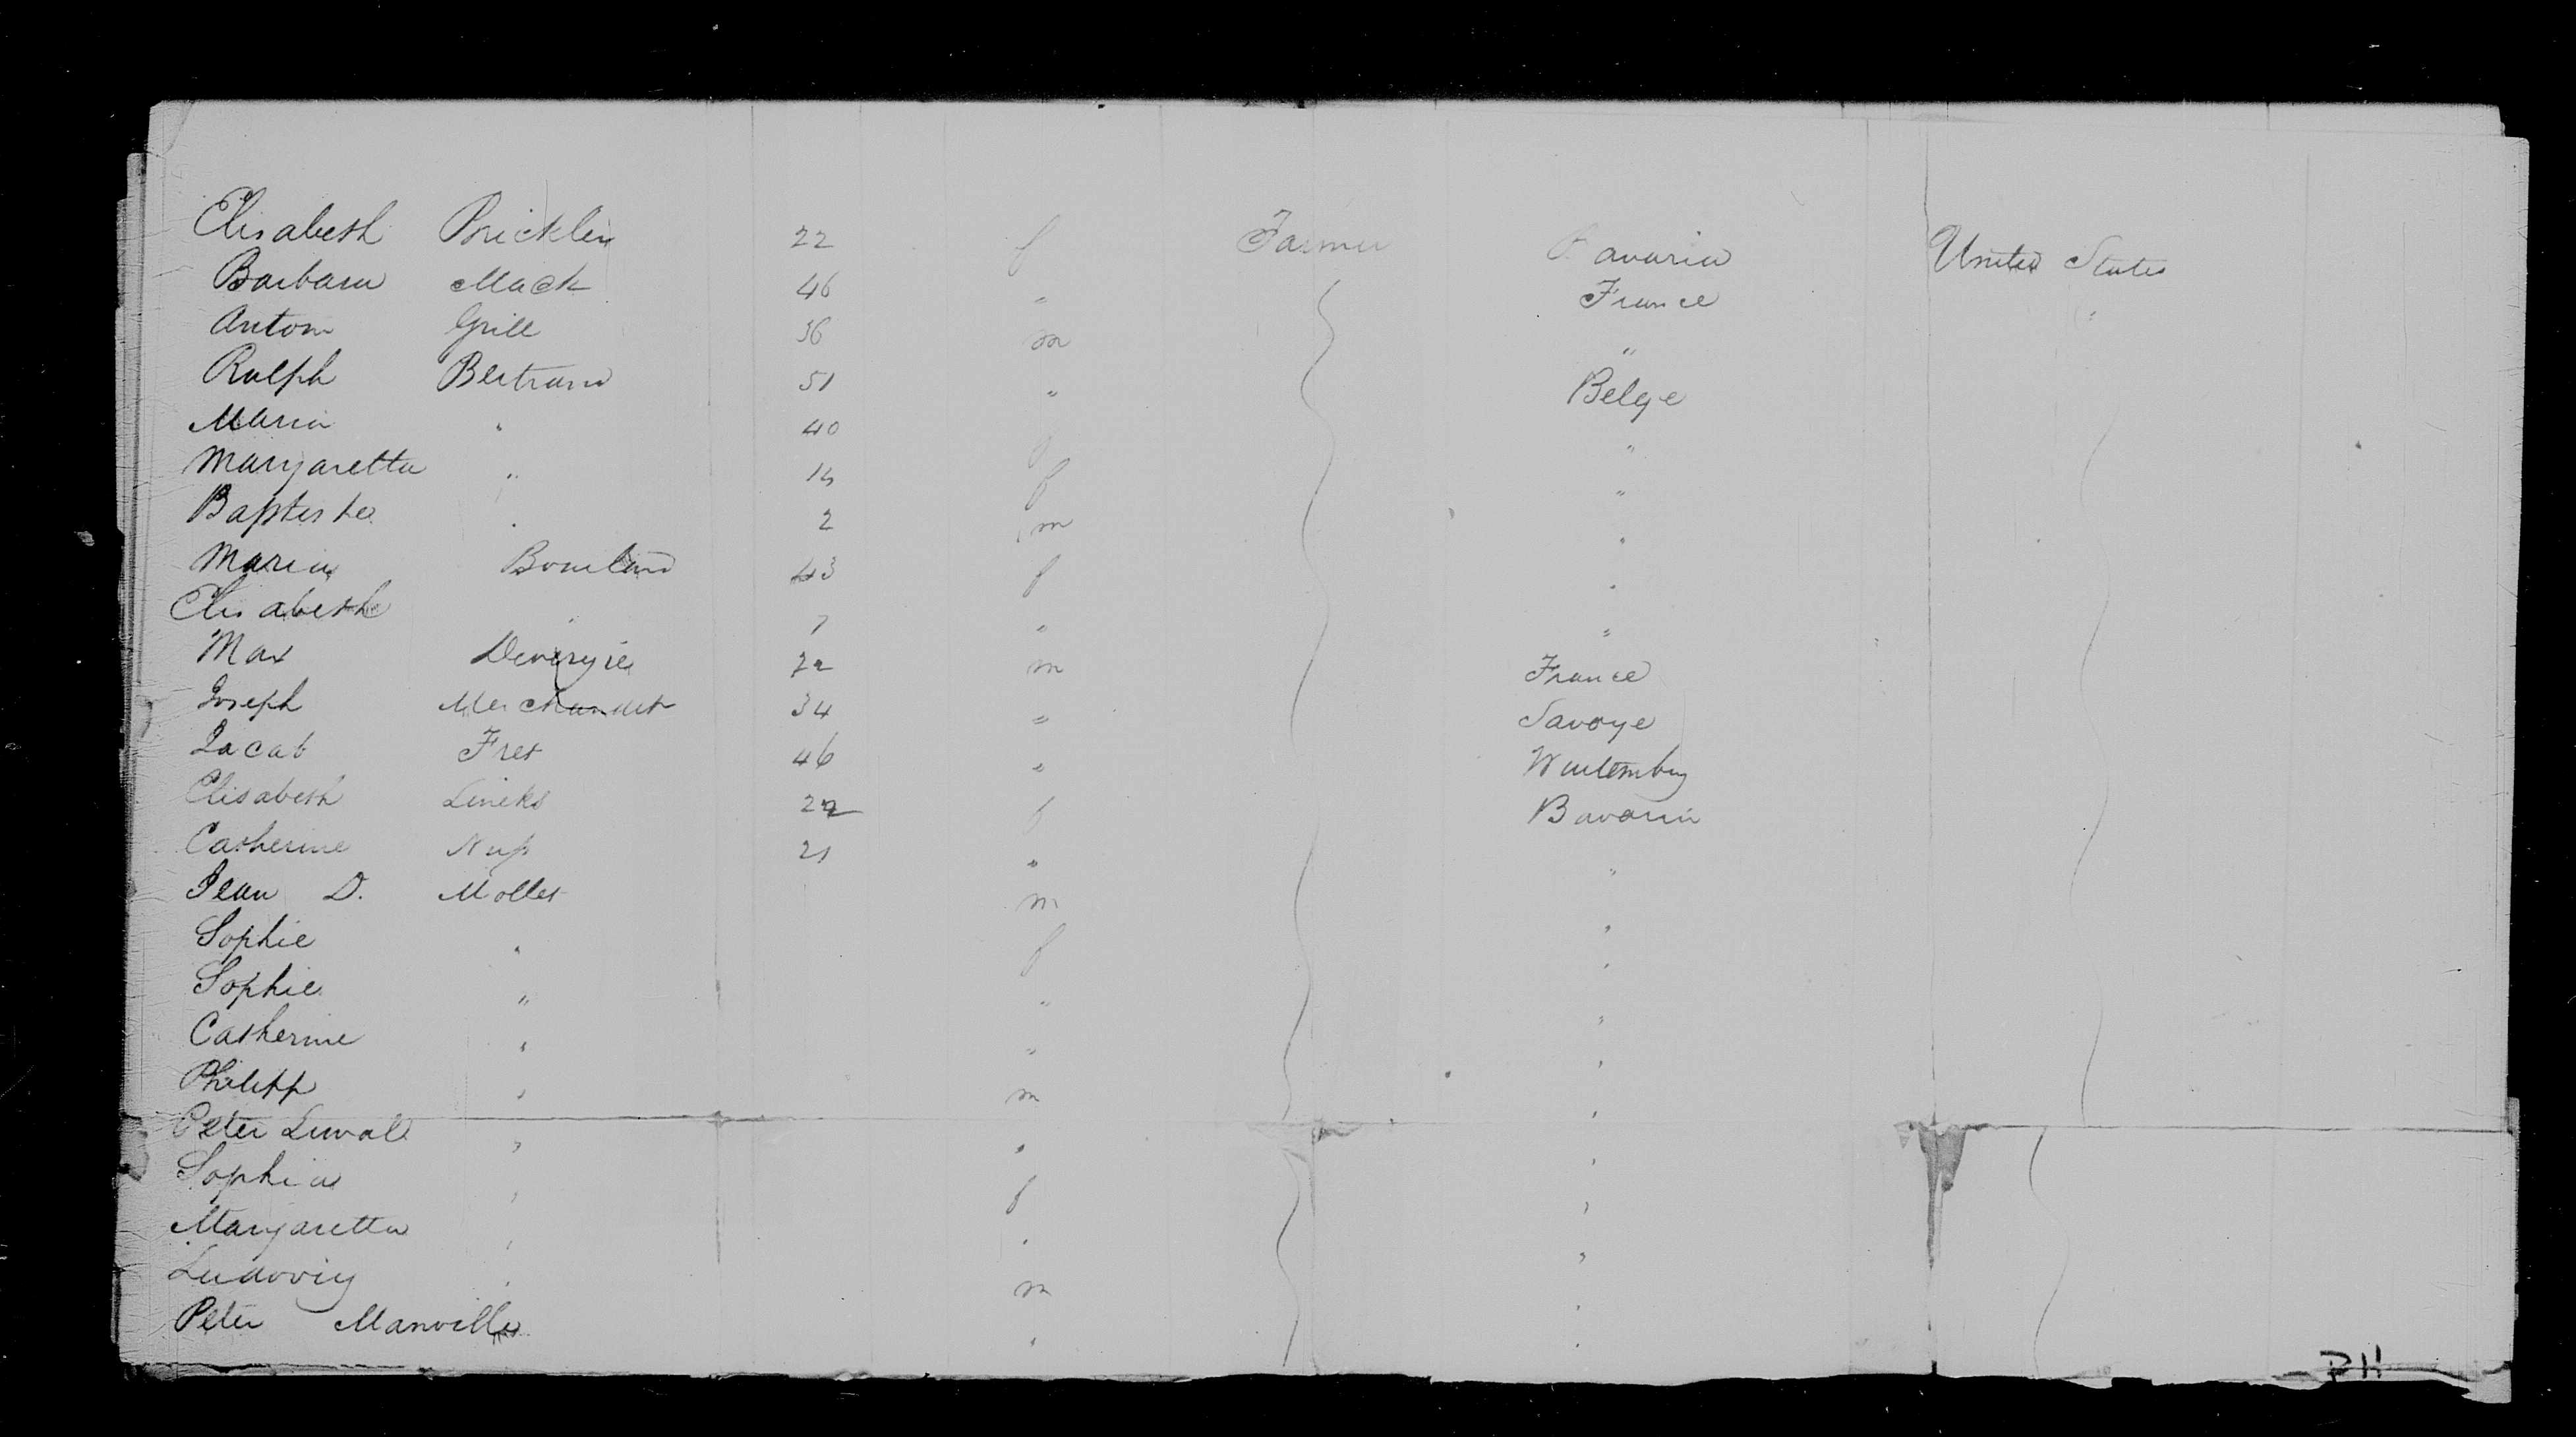 Elisabeth Bricklen 22 f Farmer Bavaria United States
Barbara Mack 46 " France "
Anton Grill 36 m "
Ralph Bertrand 51 " Belge
Maria " 40 f "
Margaretta " 14 f "
Baptiste " 2 m "
Maria Bourland 43 f "
Elisabeth " 7 " "
Max 22 m France
Joseph 34 " Savoye
Jacab Fret 46 " Wurtemburg
Elisabeth Lineks 22 f Bavaria
Catherine Nuss 21 " "
Jean D. Mollet m "
Sophie " f "
Sophie " " "
Catherine " " "
Philipp " m "
Peter Luwal " " "
Sophia " f "
Margaretta " " "
Ludovig " m "
Peter Manville " "
PH